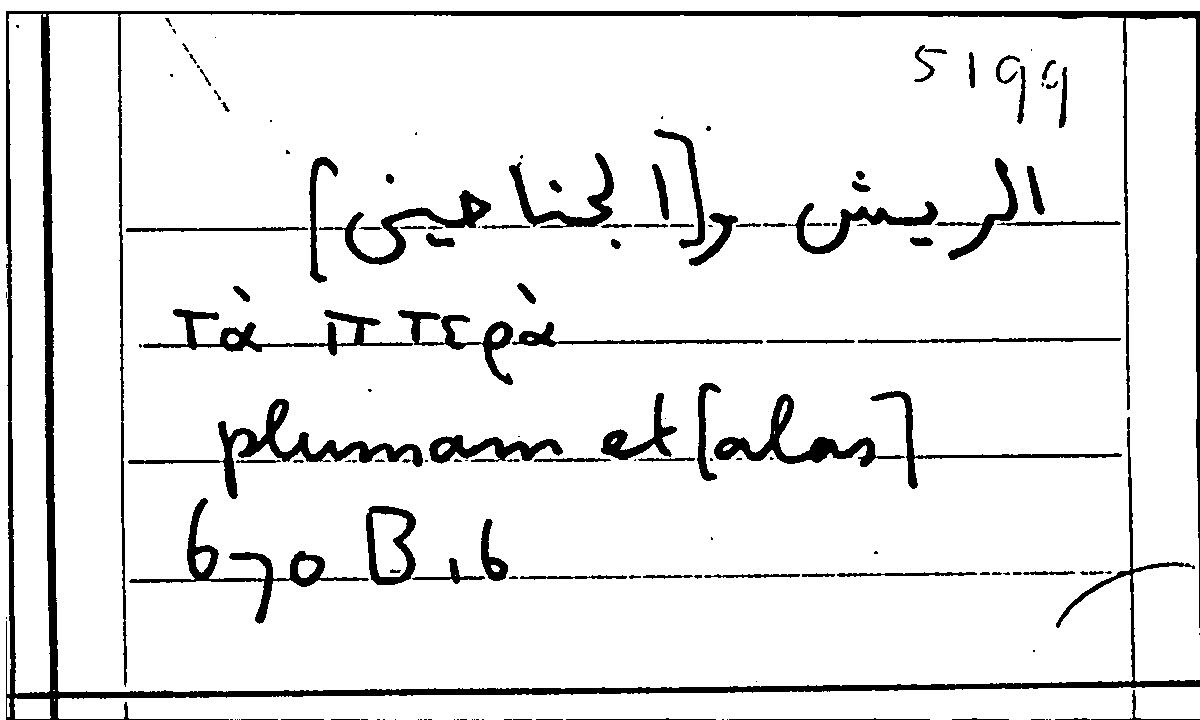 5199
الريش و[الجناحين]
τὰ πτερὰ
plumam et [alas]
670 B 16